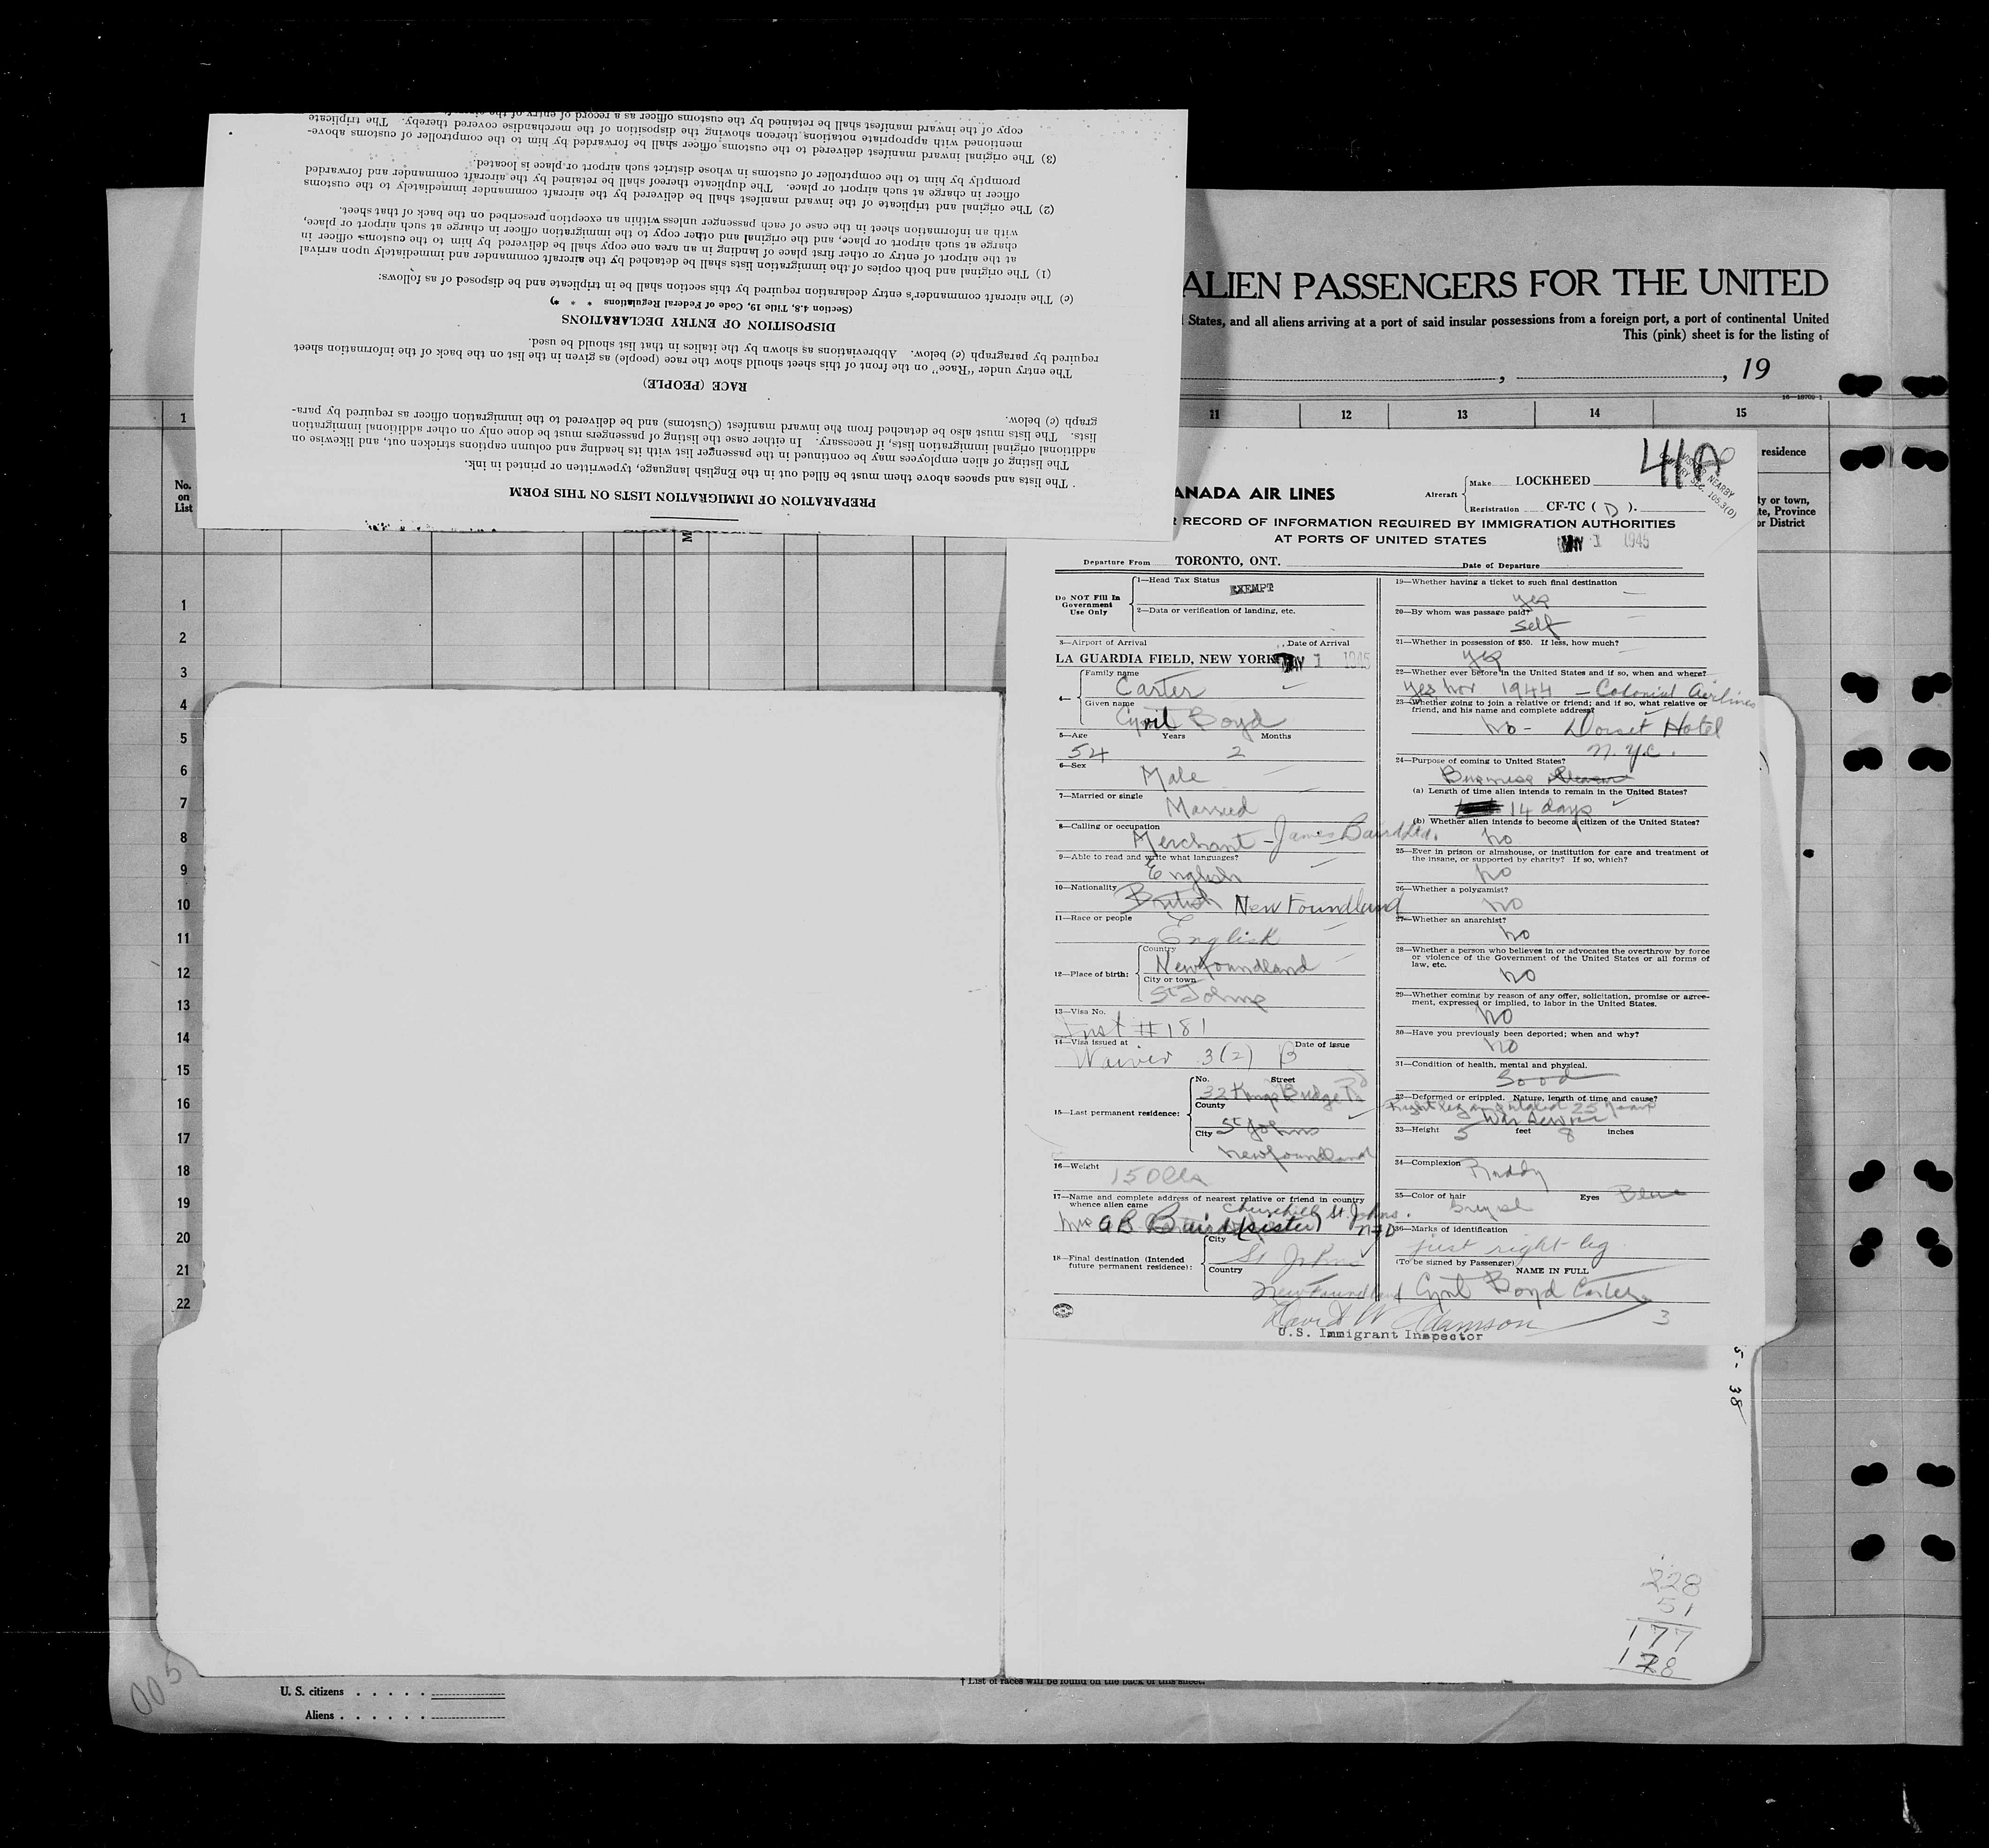 PREPARATION OF IMMIGRATION LISTS ON THIS FORM
The lists and spaces above them must be filled out in the English language, typewritten or printed in ink.
The listing of alien employees may be continued in the passenger list with its heading and column captions stricken out, and likewise on
additional original immigration lists, if necessary. In either case the listing of passengers must be done only on other additional immigration
lists. The lists must also be detached from the inward manifest (Customs) and be delivered to the immigration officer as required by para-
graph (c) below.
RACE (PEOPLE)
The entry under "Race" on the front of this sheet should show the race (people) as given in the list on the back of the information sheet
required by paragraph (c) below. Abbreviations as shown by the italics in that list should be used.
DISPOSITION OF ENTRY DECLARATIONS
(Section 4.8, Title 19, Code of Federal Regulations * * *)
(c) The aircraft commander's entry declaration required by this section shall be in triplicate and be disposed of as follows:
(1) The original and both copies of the immigration lists shall be detached by the aircraft commander and immediately upon arrival
at the airport of entry or other first place of landing in an area one copy shall be delivered by him to the customs officer in
charge at such airport or place, and the original and other copy to the immigration officer in charge at such airport or place,
with an information sheet in the case of each passenger unless within an exception prescribed on the back of that sheet.
(2) The original and triplicate of the inward manifest shall be delivered by the aircraft commander immediately to the customs
officer in charge at such airport or place. The duplicate thereof shall be retained by the aircraft commander and forwarded
promptly by him to the comptroller of customs in whose district such airport or place is located.
(3) The original inward manifest delivered to the customs officer shall be forwarded by him to the comptroller of customs above-
mentioned with appropriate notations thereon showing the disposition of the merchandise covered thereby. The triplicate
copy of the inward manifest shall be retained by the customs officer as a record of entry of the
ALIEN PASSENGERS FOR THE UNITED
States, and all aliens arriving at a port of said insular possessions from a foreign port, a port of continental United
This (pink) sheet is for the listing of
, , 19
16—18709-1
1 11 12 13 14 15
residence
No. on List
ty or town,
te, Province
or District
41A
ANADA AIR LINES
Aircraft Make LOCKHEED
Registration CF-TC ( D ).
RECORD OF INFORMATION REQUIRED BY IMMIGRATION AUTHORITIES
AT PORTS OF UNITED STATES
MAY 1 1945
Departure From TORONTO, ONT. Date of Departure
Do NOT Fill In Government Use Only
1—Head Tax Status EXEMPT
2—Data or verification of landing, etc.
3—Airport of Arrival Date of Arrival
LA GUARDIA FIELD, NEW YORK MAY 1 1945
4— Family name Carter
Given name Cyril Boyd
5—Age 54 Years 2 Months
6—Sex Male
7—Married or single Married
8—Calling or occupation Merchant - James Baird Ltd.
9—Able to read and write what languages? English
10—Nationality British NewFoundland
11—Race or people English
12—Place of birth: Country Newfoundland
City or town St Johns
13—Visa No. Inst # 181
14—Visa issued at Waiver 3(2) B Date of issue
15—Last permanent residence: No. Street 32 Kings Bridge Rd
County
City St Johns
Newfoundland
16—Weight 150 lbs
17—Name and complete address of nearest relative or friend in country
whence alien came
Churchill St. Johns.
Mrs A B Baird (sister) NFD
18—Final destination (Intended future permanent residence): City St Johns
Country Newfoundland
19—Whether having a ticket to such final destination
yes
20—By whom was passage paid?
Self
21—Whether in possession of $50. If less, how much?
yes
22—Whether ever before in the United States and if so, when and where?
yes Nov 1944 - Colonial Airlines
23—Whether going to join a relative or friend; and if so, what relative or
friend, and his name and complete address?
No - Dorset Hotel
N.Y.C.
24—Purpose of coming to United States?
Business
(a) Length of time alien intends to remain in the United States?
14 days
(b) Whether alien intends to become a citizen of the United States?
No
25—Ever in prison or almshouse, or institution for care and treatment of
the insane, or supported by charity? If so, which?
No
26—Whether a polygamist?
No
27—Whether an anarchist?
No
28—Whether a person who believes in or advocates the overthrow by force
or violence of the Government of the United States or all forms of
law, etc.
No
29—Whether coming by reason of any offer, solicitation, promise or agree-
ment, expressed or implied, to labor in the United States.
No
30—Have you previously been deported; when and why?
No
31—Condition of health, mental and physical.
Good
32—Deformed or crippled. Nature, length of time and cause?
Right leg amputated 25 years
War Service
33—Height 5 feet 8 inches
34—Complexion Ruddy
35—Color of hair Greyish Eyes Blue
36—Marks of identification
just right leg
(To be signed by Passenger) NAME IN FULL
Cyril Boyd Carter
David W Adamson
3
U.S. Immigrant Inspector
1
2
3
4
5
6
7
8
9
10
11
12
13
14
15
16
17
18
19
20
21
22
5-38
228
51
177
128
005
U. S. citizens
Aliens
† List of races will be found on the back of this sheet.